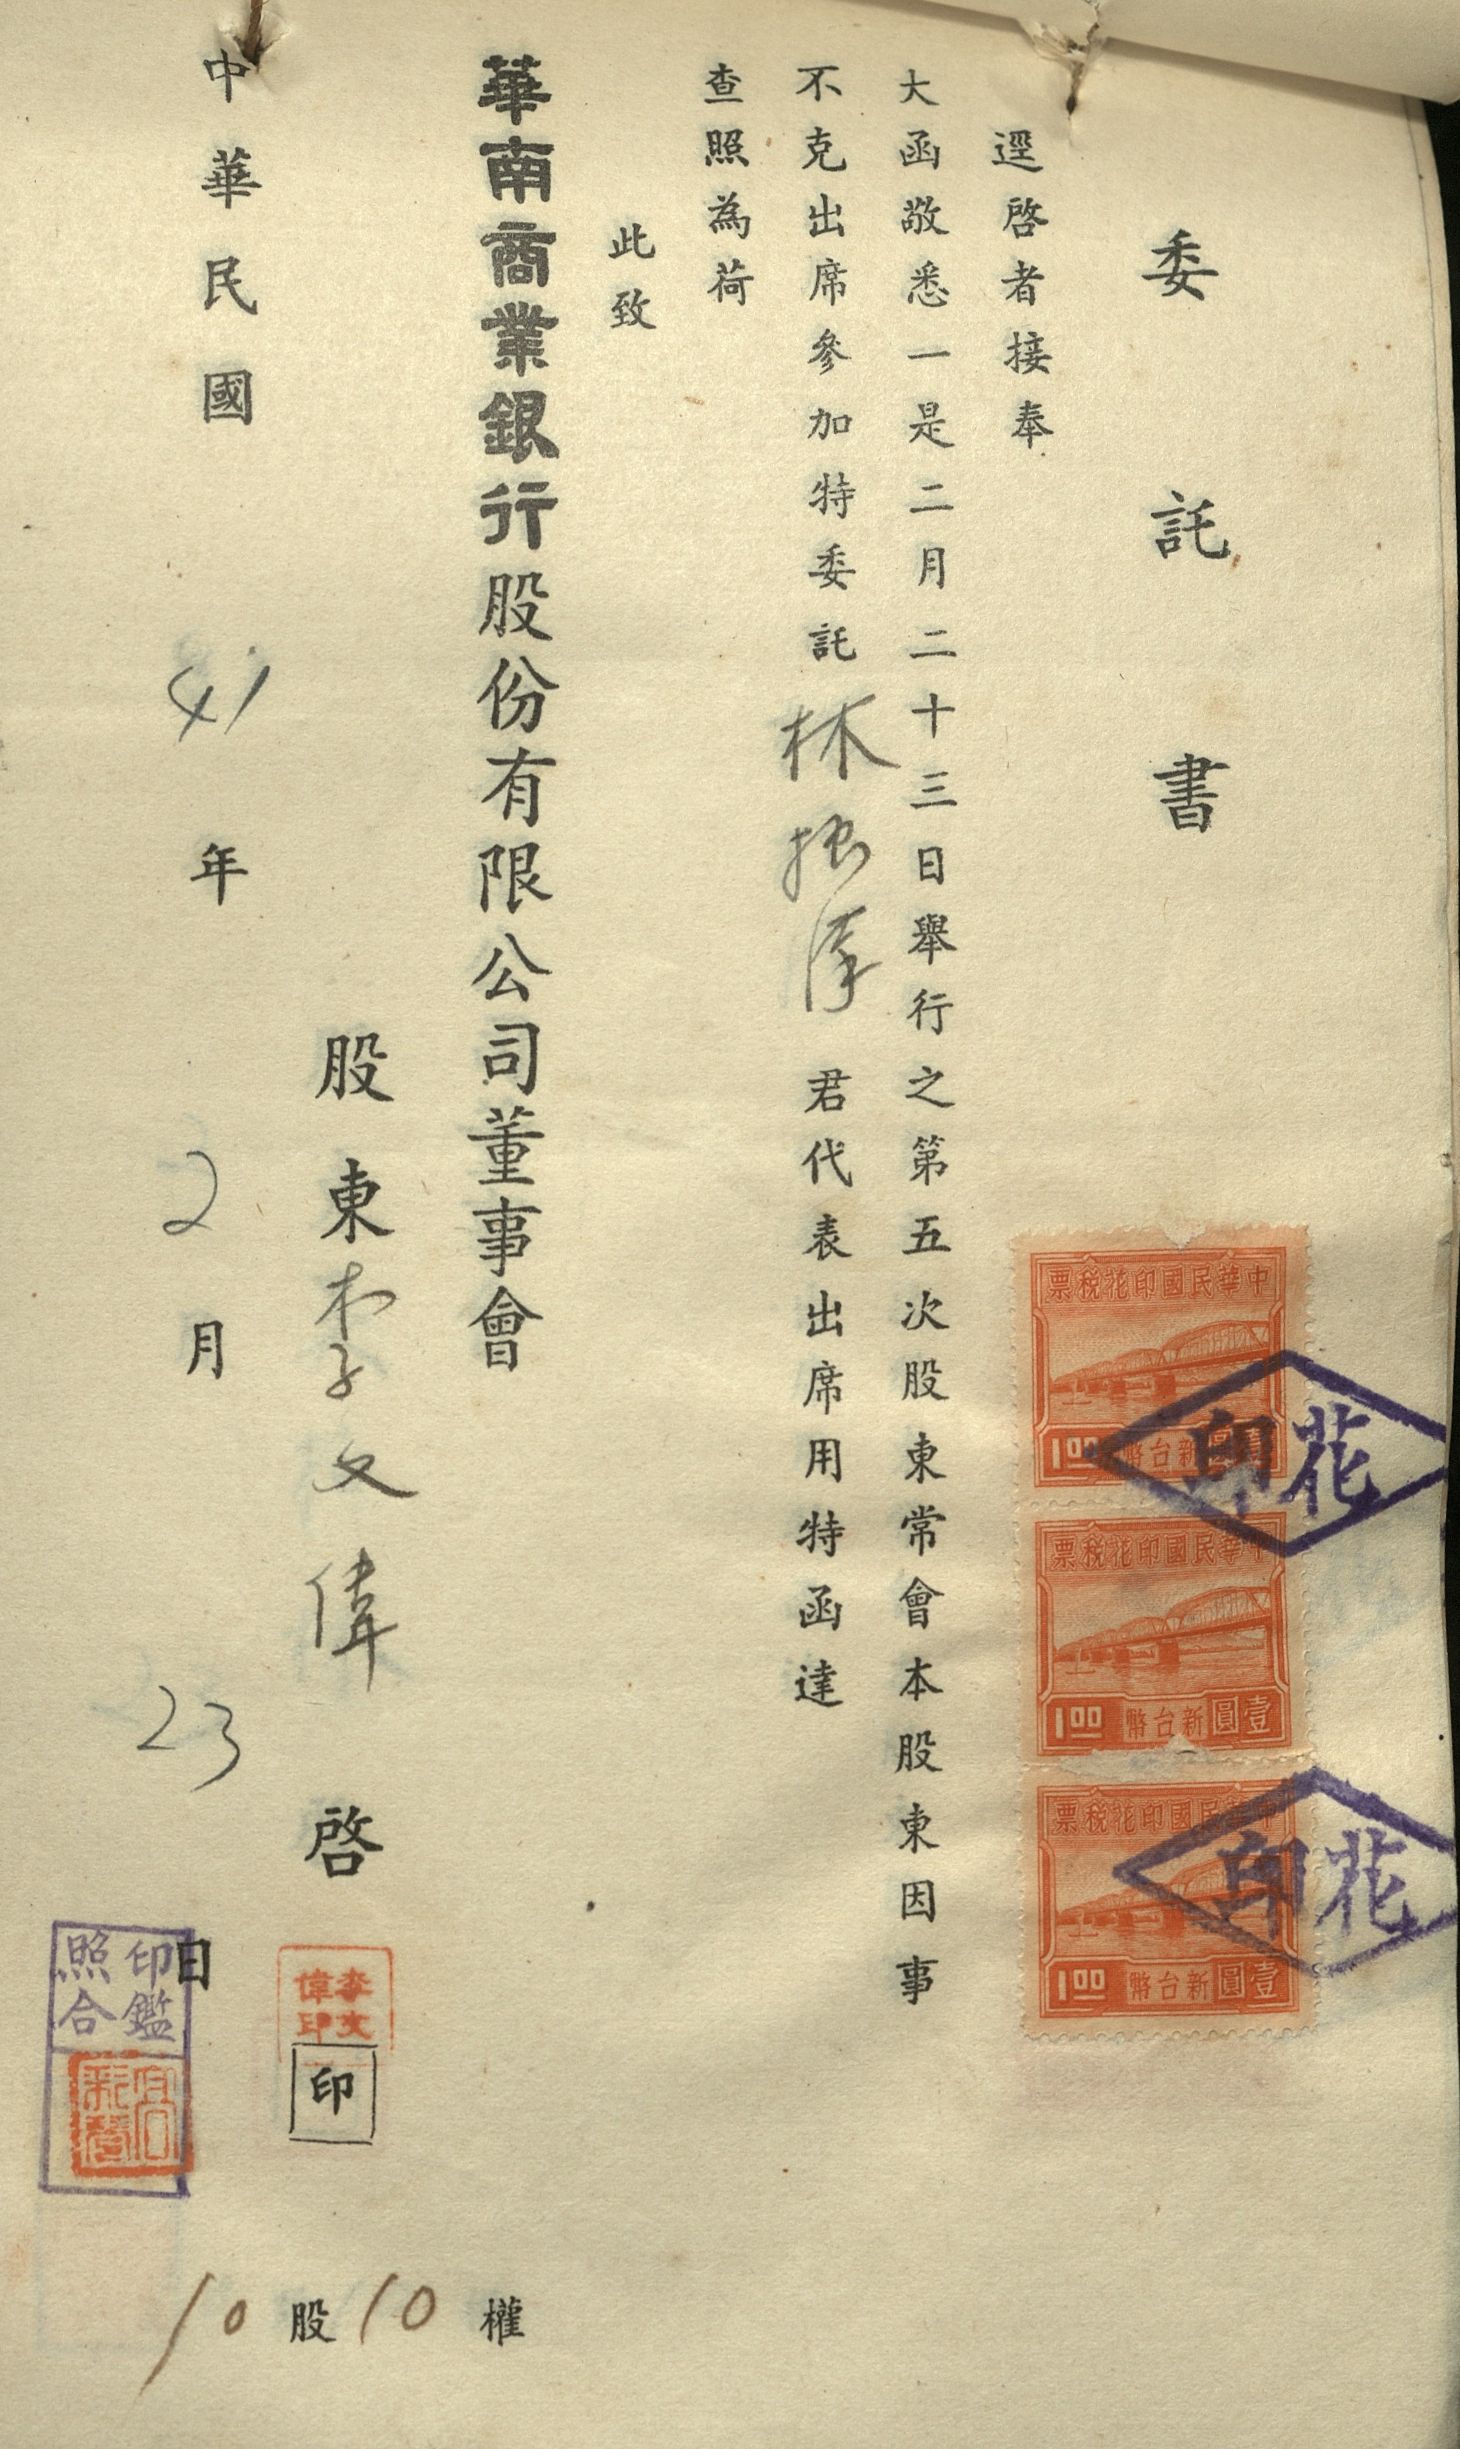 委託書
逕啓者接奉
大函敬悉一是二月二十三日舉行之第五次股東常會本股東因事
不克出席參加特委託林 君代表出席用特函達
查照為荷
此致
華南商業銀行股份有限公司董事會
股東李文偉啓
印
李文偉印
中華民國41年2月23日
10股10權
印鑑照合
中華民國印花稅票
1.00 新台幣壹圓
中華民國印花稅票
1.00 新台幣壹圓
中華民國印花稅票
1.00 新台幣壹圓
花印
花印